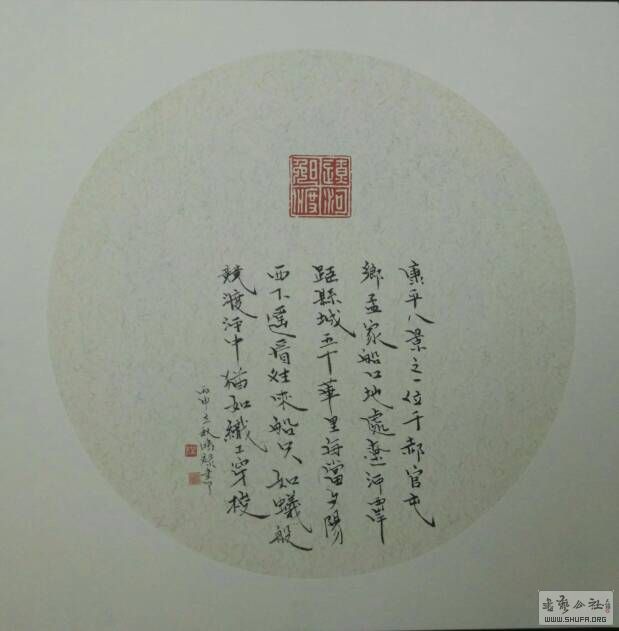 遼河晚渡
康平八景之一位于郝官屯
鄉孟家船口地處遼河畔
距縣城五十華里每當夕陽
西下遥看往來船只如蟻般
競渡河中猶如織工穿梭
丙申立秋書
书艺公社
WWW.SHUFA.ORG